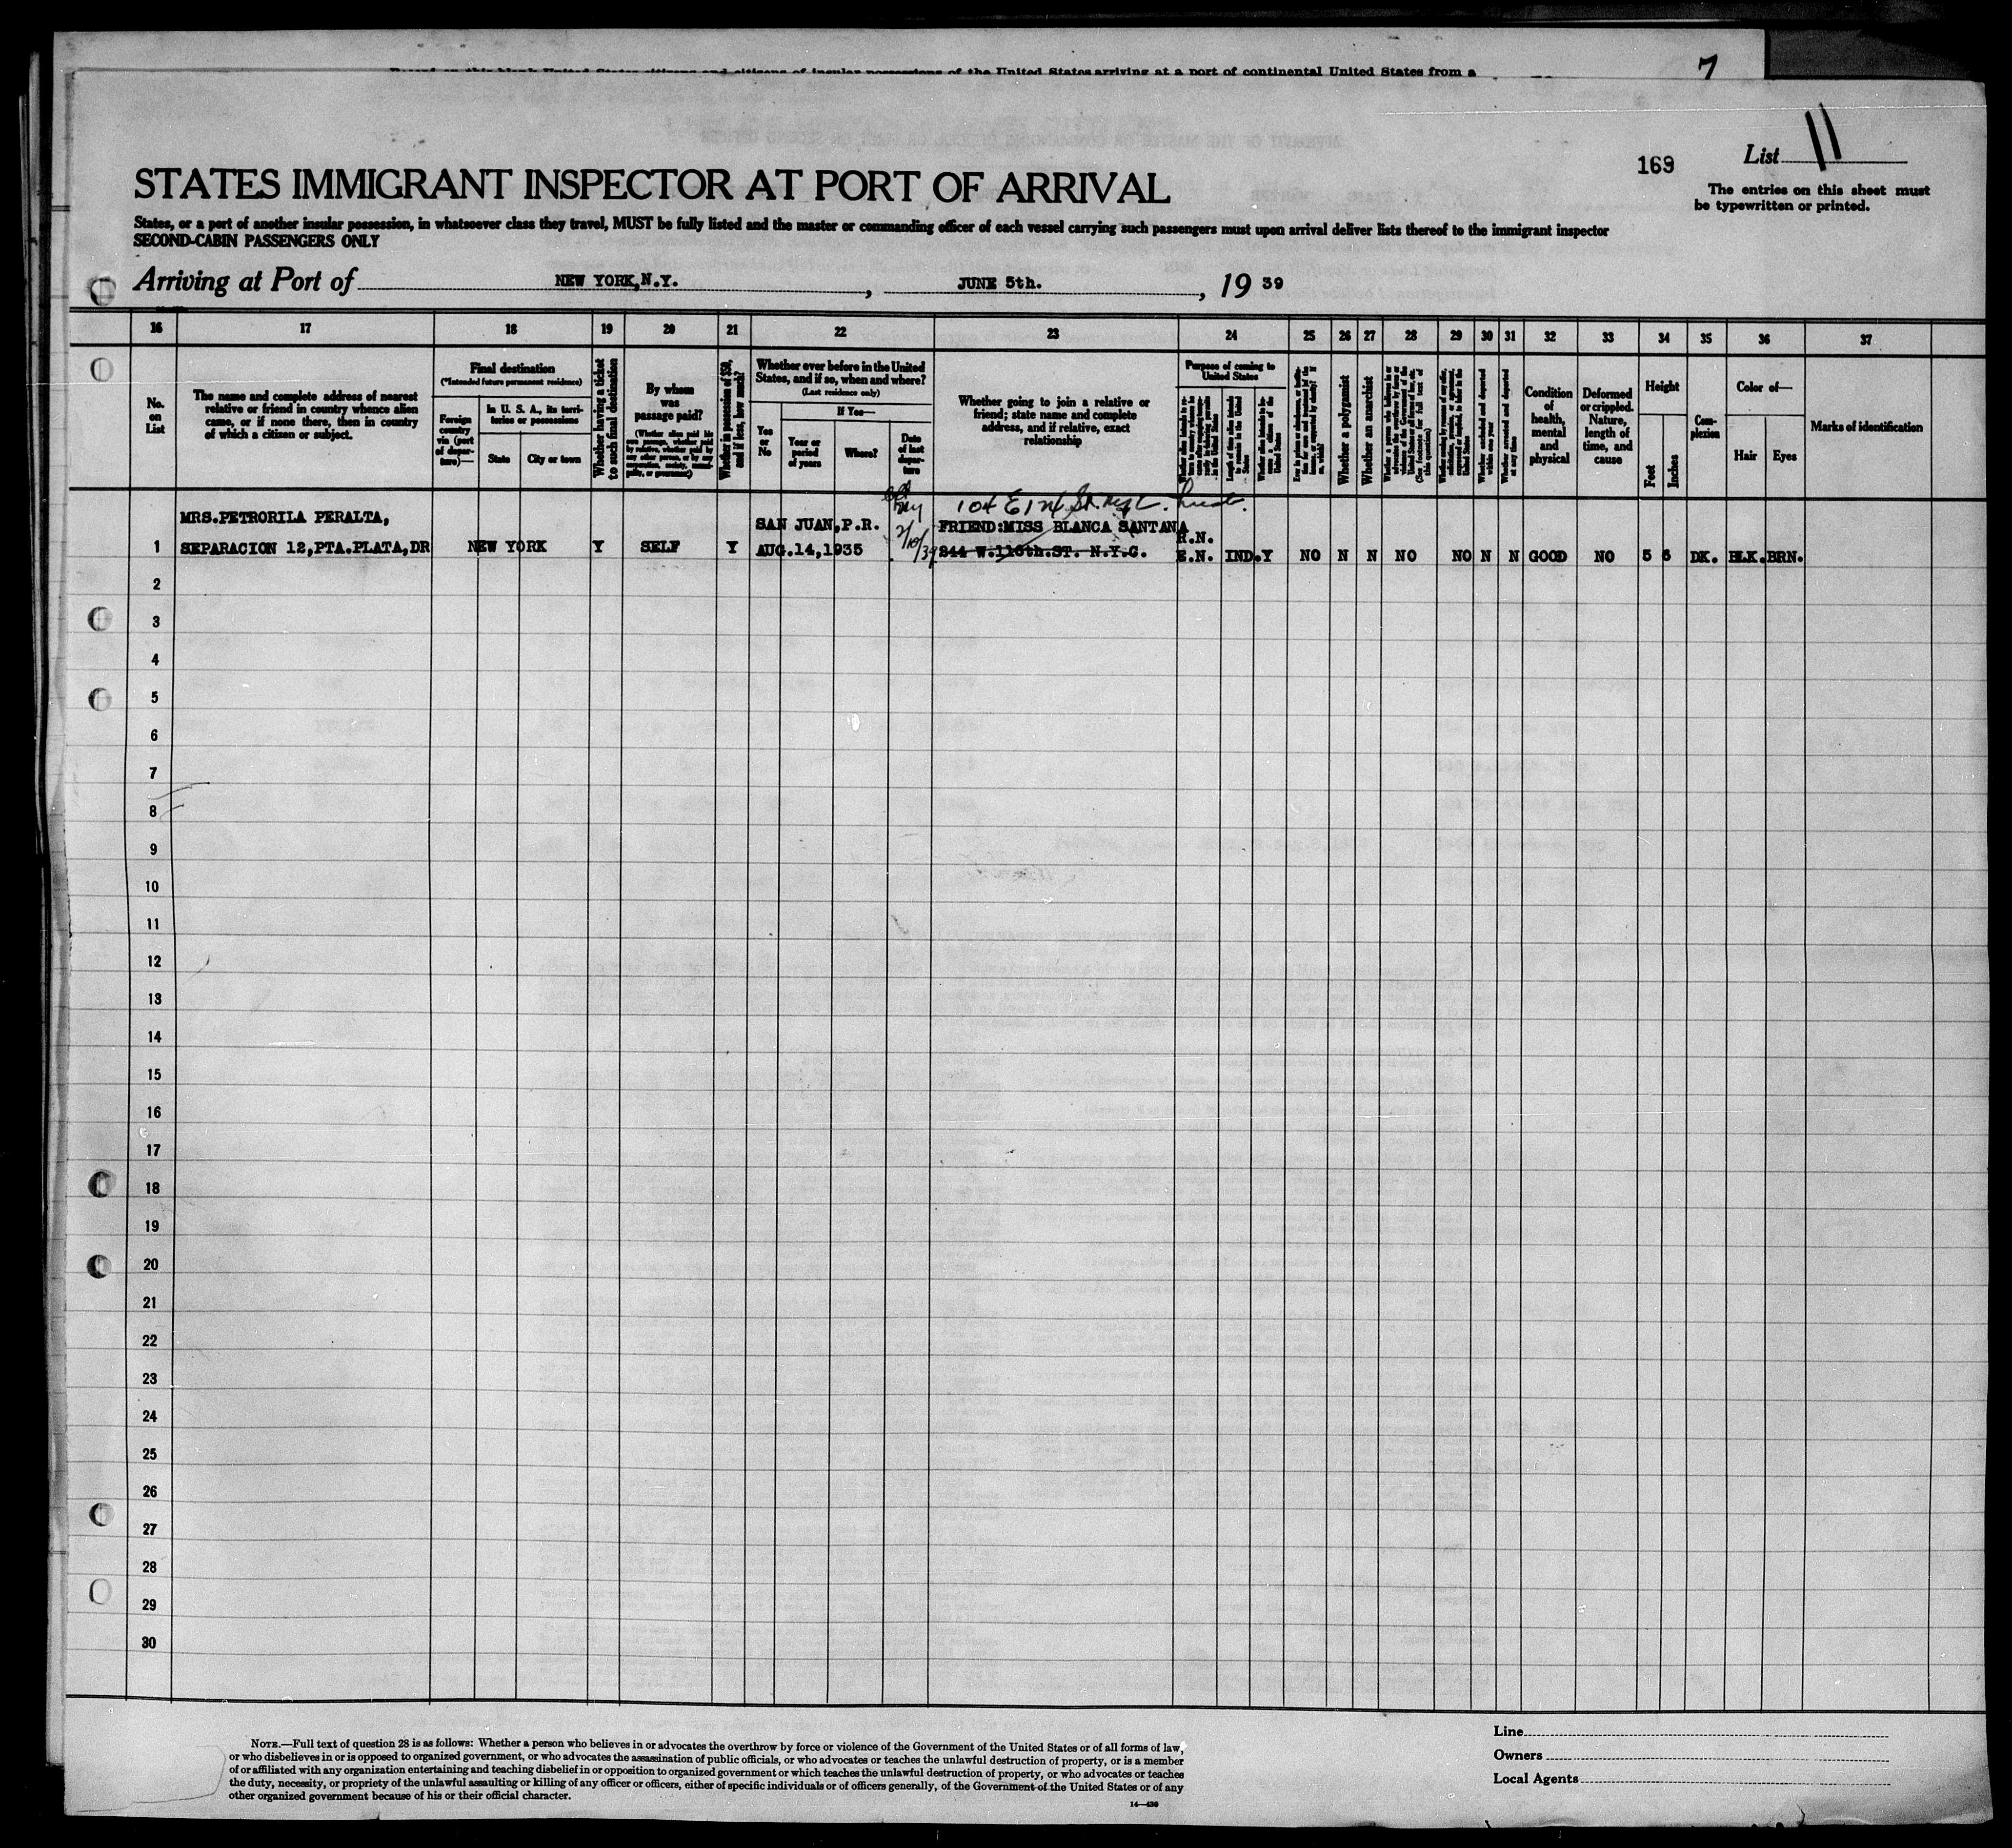 7
169
List 11
STATES IMMIGRANT INSPECTOR AT PORT OF ARRIVAL
The entries on this sheet must
be typewritten or printed.
States, or a port of another insular possession, in whatsoever class they travel, MUST be fully listed and the master or commanding officer of each vessel carrying such passengers must upon arrival deliver lists thereof to the immigrant inspector
SECOND-CABIN PASSENGERS ONLY
Arriving at Port of NEW YORK, N.Y. , JUNE 5th. , 19 39
16 17 18 19 20 21 22 23 24 25 26 27 28 29 30 31 32 33 34 35 36 37
No.
on
List
The name and complete address of nearest
relative or friend in country whence alien
came, or if none there, then in country
of which a citizen or subject.
Final destination
(*Intended future permanent residence)
Foreign
country
via (port
of depar-
ture)—
In U. S. A., its terri-
tories or possessions
State
City or town
Whether having a ticket
to such final destination
By whom
was
passage paid?
Whether in possession of $50,
and if less, how much?
Whether ever before in the United
States, and if so, when and where?
(Last residence only)
Yes
or
No
If Yes—
Year or
period
of years
Where?
Date
of last
depar-
ture
Whether going to join a relative or
friend; state name and complete
address, and if relative, exact
relationship
Purpose of coming to
United States
Whether a polygamist
Whether an anarchist
Condition
of
health,
mental
and
physical
Deformed
or crippled.
Nature,
length of
time, and
cause
Height
Feet
Inches
Com-
plexion
Color of—
Hair
Eyes
Marks of identification
104 E
MRS.PETRORILA PERALTA,
SAN JUAN,P.R.
FRIEND:MISS BLANCA SANTANA
1 SEPARACION 12,PTA.PLATA,DR NEW YORK Y SELF Y AUG.14,1935 244 W.116th.ST. N.Y.C. E.N. IND.Y NO N N NO NO N N GOOD NO 5 6 DK. BLK.BRN.
2
3
4
5
6
7
8
9
10
11
12
13
14
15
16
17
18
19
20
21
22
23
24
25
26
27
28
29
30
NOTE.—Full text of question 28 is as follows: Whether a person who believes in or advocates the overthrow by force or violence of the Government of the United States or of all forms of law,
or who disbelieves in or is opposed to organized government, or who advocates the assassination of public officials, or who advocates or teaches the unlawful destruction of property, or is a member
of or affiliated with any organization entertaining and teaching disbelief in or opposition to organized government or which teaches the unlawful destruction of property, or who advocates or teaches
the duty, necessity, or propriety of the unlawful assaulting or killing of any officer or officers, either of specific individuals or of officers generally, of the Government of the United States or of any
other organized government because of his or their official character.
14—430
Line
Owners
Local Agents